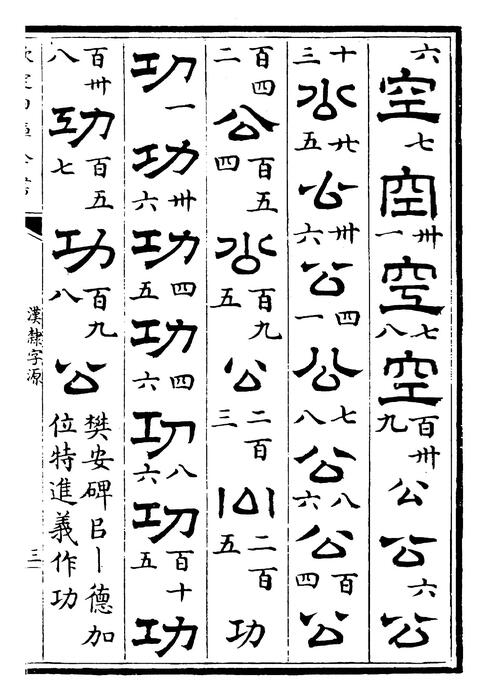 六空七空卅一空七八空百卅九公公六公
十三公廿五公卅六公四一公七八公八六公百四公
百四二公百五四公百九五公二百三公二百五功
功一功卅六功四五功四六功八六功百十五功
百卅八功百五七功百九八公樊安碑㠯丨德加位特進義作功
漢隸字源
三